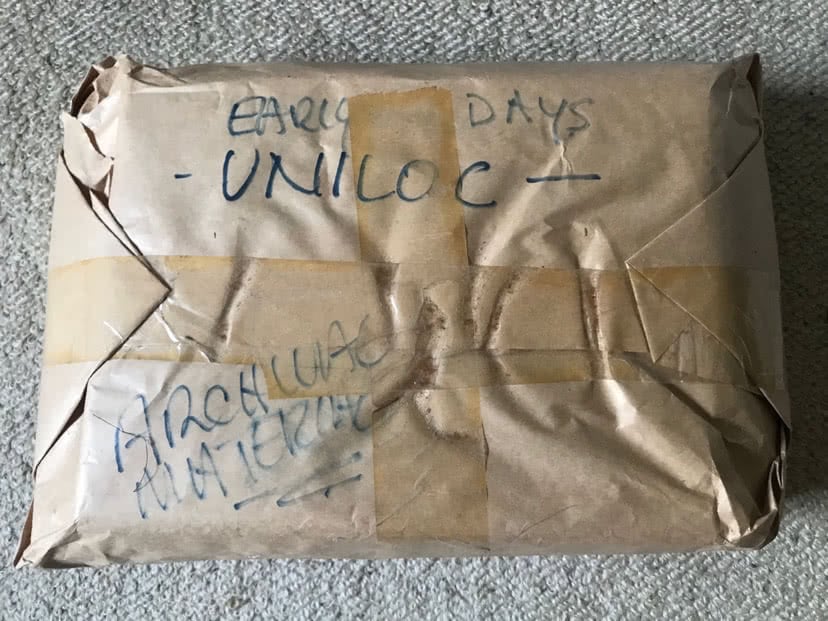 EARLY DAYS
- UNILOC —
ARCHIVAL
MATERIAL